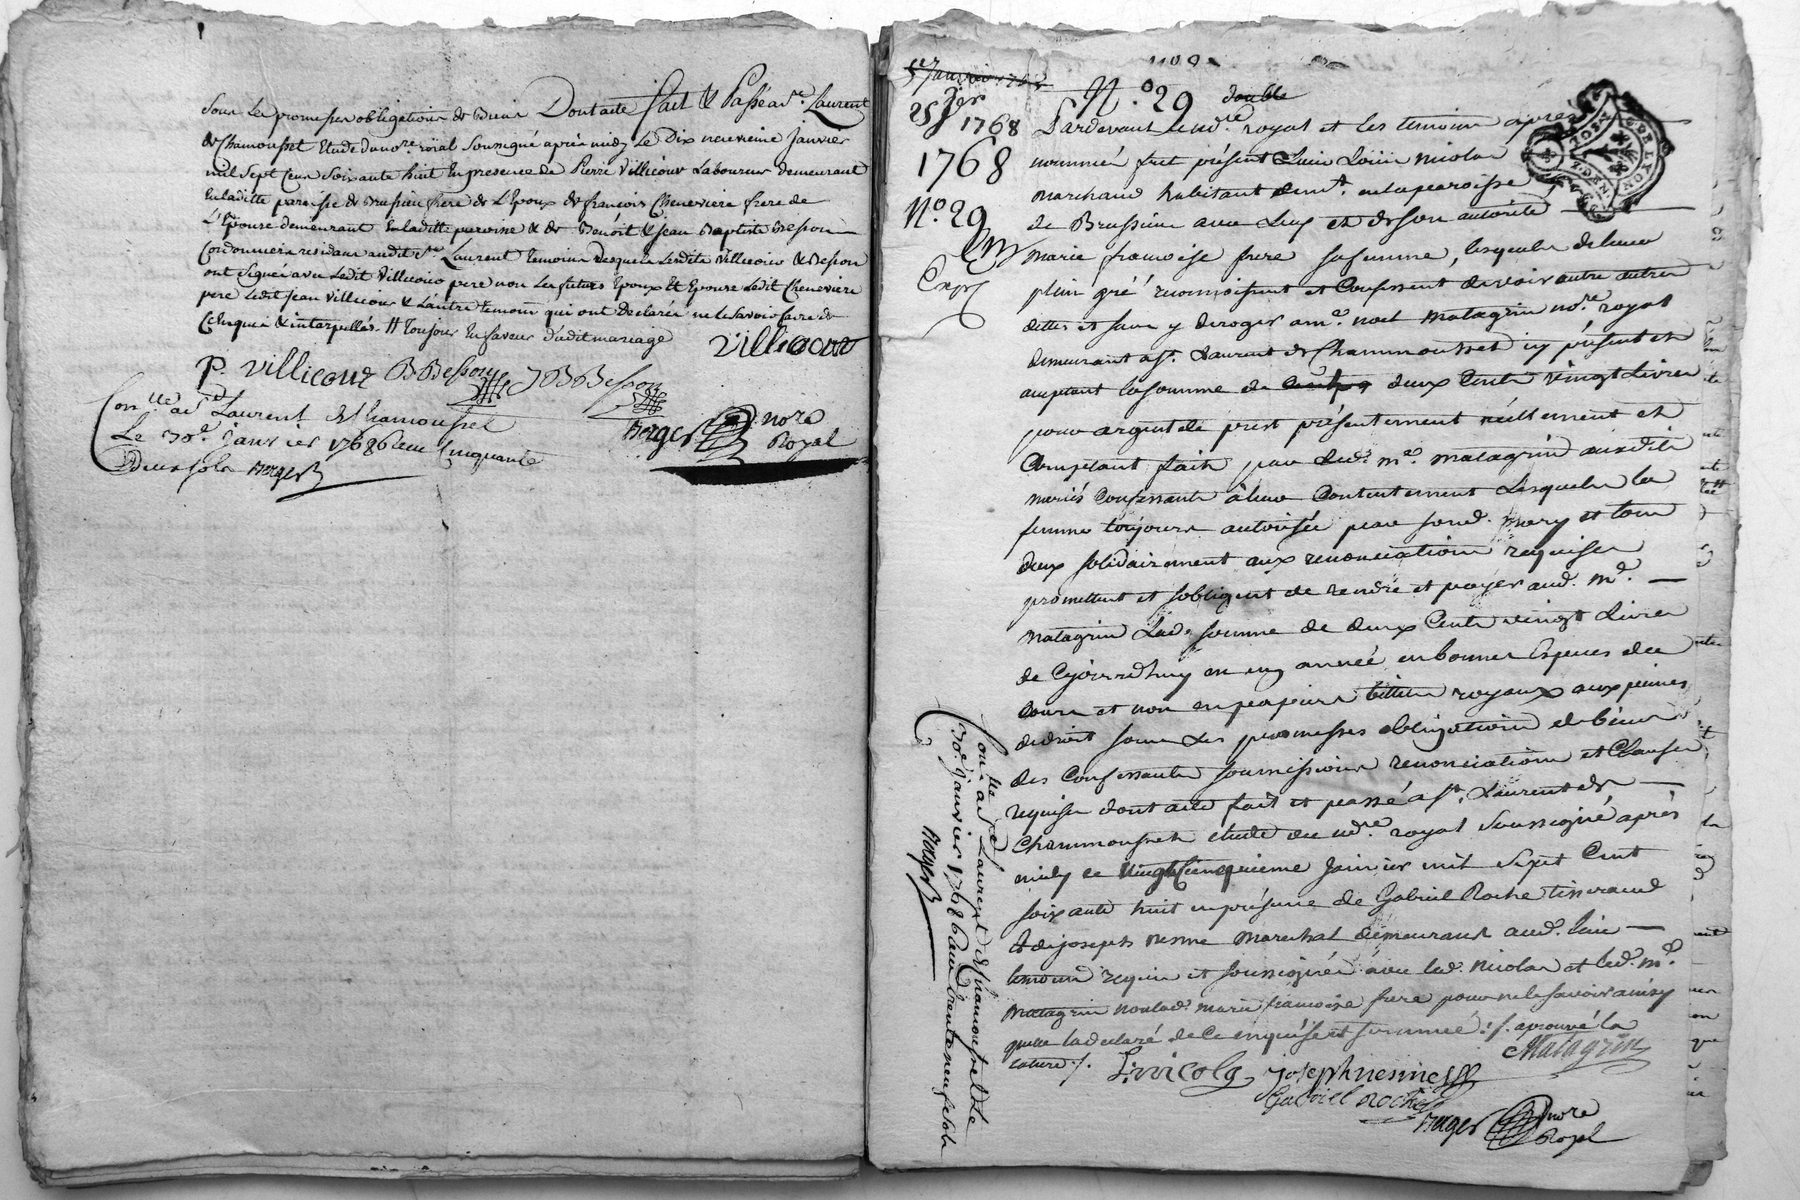 Sous les promesses obligations de Biens Dont acte fait & Passé a St. Laurent
de Chamousset Etude du no.re roial Soussigné après midy Le Dix neuvieme Janvier
mil Sept Cens Soixante huit En presence de Pierre Villicour Laboureur demeurant
En laditte paroisse de Brussieu frere de L'Epoux de françois Chenevierre frere de
L'Epouse demeurant En laditte paroisse & de Benoit & Jean Baptiste Besson
Cordonniers residans audit St. Laurent Temoins Desquels Lesdits Villicour & Besson
ont Signé avec Ledit Villicour pere non Les futurs Epoux Et Epouse Ledit Chenevierre
pere Ledit Jean Villicour & L'autre temoin qui ont Declaré ne le Savoir faire de
ce Enquis & interpellés. # Toujours En faveur dudit mariage
villicour
P. Villicour B Besson J B Besson
Berger no.re Royal
Con.lle a St. Laurent de Chamousset
Le 30e. Janvier 1768
Deux sols Berger
25 Jer
1768
1768
No. 29
Exp.
N.o 29 double
Pardevant le no.re royal et les temoins après
nommés fut présent Louis nicolas
marchand habitant dem.t en la paroisse
de Brussieu avec luy et de son autorité
Marie françoise frere sa femme, lesquels de leur
plein gré reconnoissent et Confessent devoir outre autres
dettes et sans y deroger a m.e noel Matagrin no.re royal
demeurant a St. Laurent de Chammousset icy présent et
acceptant la somme de deux Cents vingt Livres
pour argent de prest présentement réellement et
Comptant fait par led. m.e matagrin auxdits
mariés Confessants à leur Contentement Lesquels la
femme toujours autorisée par sond. mary et tous
deux solidairement aux renonciations requises
promettent et s'obligent de rendre et payer aud. m.e
Matagrin Lad. somme de deux Cents vingt Livres
de Cejourd'huy en un année en bonnes Especes de
Cours et non en papiers billets royaux aux peines
de droit sous les promesses obligations de biens
des Confessants soumissions renonciations et Clauses
requises dont acte fait et passé a St. Laurent de
Chammousset etude du no.re royal Soussigné après
midy le vingt Cinquieme Janvier mil sept Cent
soixante huit en présence de Gabriel Roche tisserand
& de joseph nesme Marechal demeurant aud. lieu
temoins requis et soussignés avec led. Nicolas et led. m.e
Matagrin non lad. marie françoise frere pour ne le savoir ainsy
quelle la declaré de Ce enquise et sommée ./. aprouvé la
rature ./.
Matagrin
L. nicolas joseph nesme
Gabriel roche
Berger no.re Royal
Con.lle a St. Laurent de Chamousset Le
30e. Janvier 1768 trente neuf sols
Berger